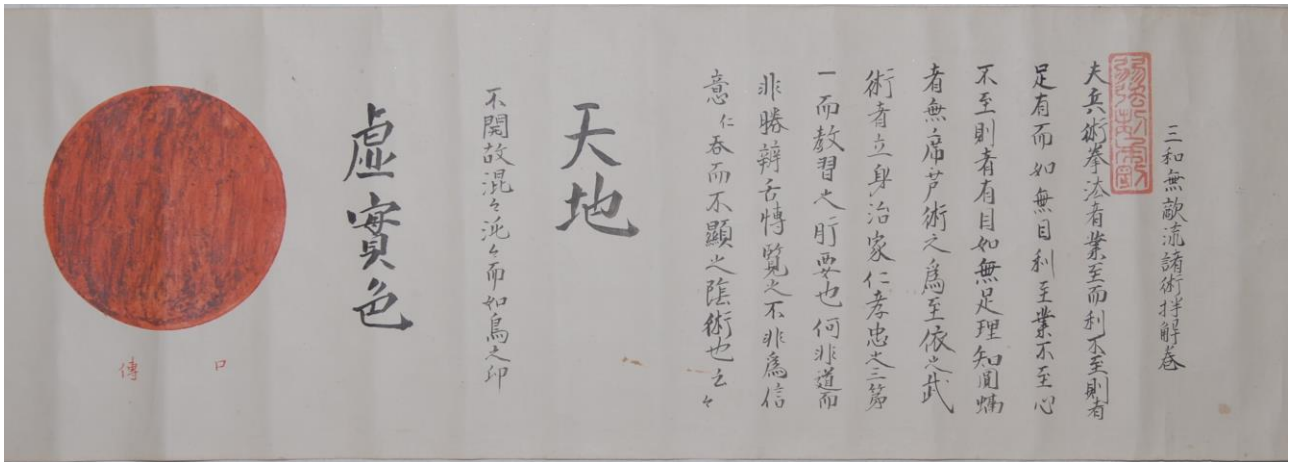 三和無敵流諸術拌解巻
夫兵術拳法者業至而利不至則者
足有而如無目利至業不至心
不至則者有目如無足理知圓
者無席芦術之為至依之武
術者立身治家仁孝忠之三第
一而教習之肝要也何非道而
非勝辨舌博覧之不非爲信
意仁呑而不顯之陰術也云々
天地
不開故混々沌々而如鳥之卵
虚實色
口傳